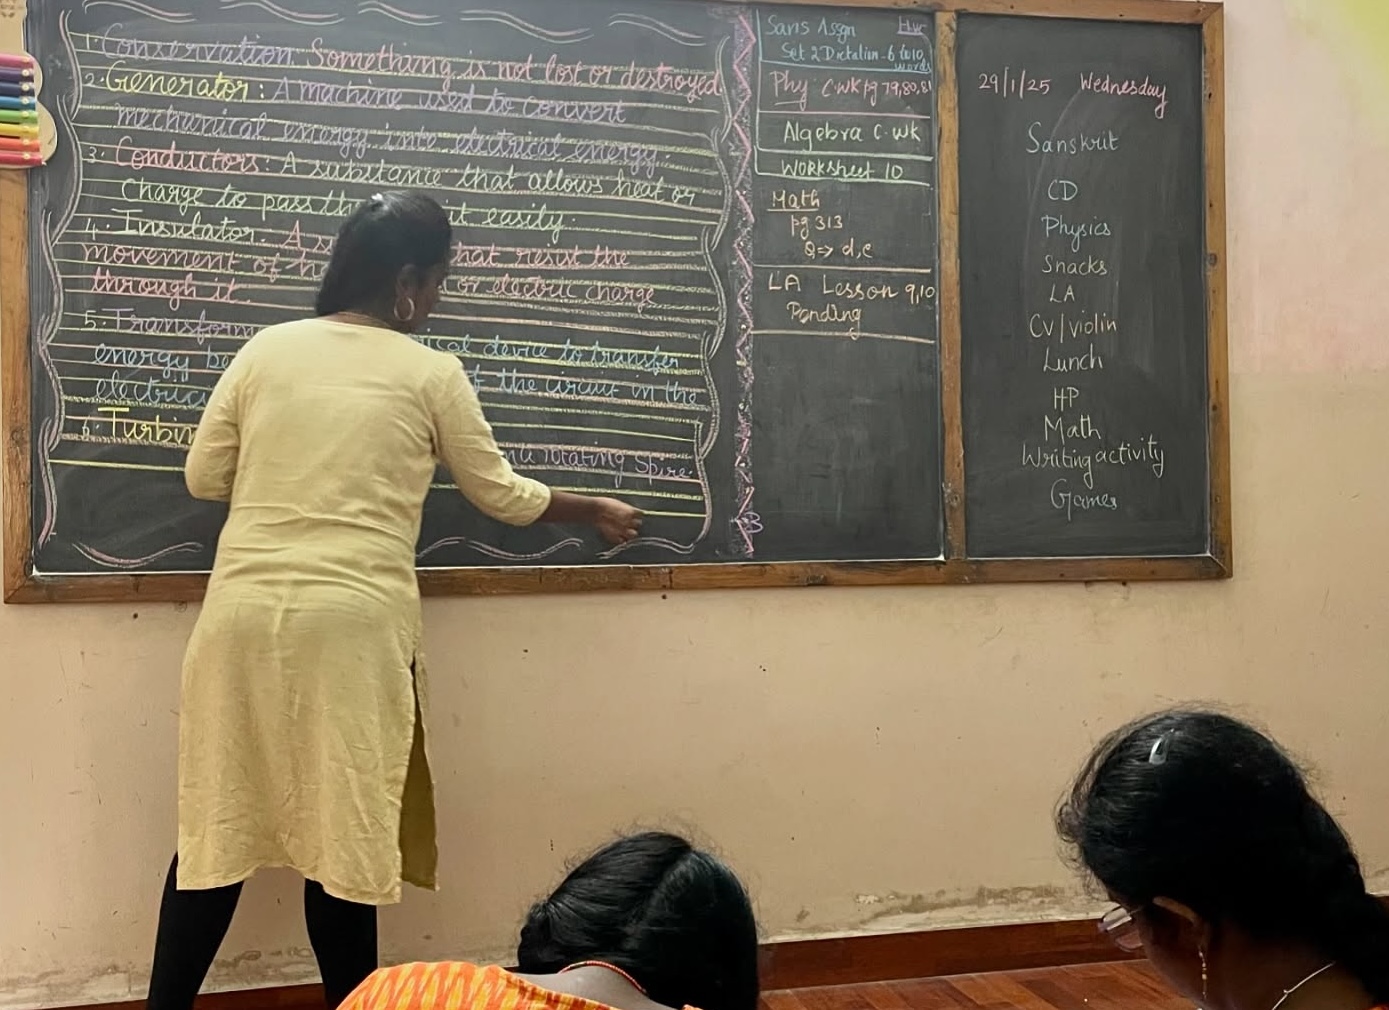 1. Conservation: Something is not lost or destroyed
2. Generator: A machine used to convert
mechanical energy into electrical energy.
3. Conductors: A substance that allows heat or
charge to pass it easily.
4. Insulator: A hat resist the
movement of or electric charge
through it.
5. Transform ical device to transfer
energy be f the circuit in the
electric
6. Turbin rotating Spire.
Sans Assgn H.W
Set 2 Dictation - 6 to 10
words
Phy C.wk pg 79,80,81
Algebra C.wk
Worksheet 10
Math
pg 313
Q => d,e
LA Lesson 9,10
Pending
29/1/25 Wednesday
Sanskrit
CD
Physics
Snacks
LA
CV/violin
Lunch
HP
Math
Writing activity
Games